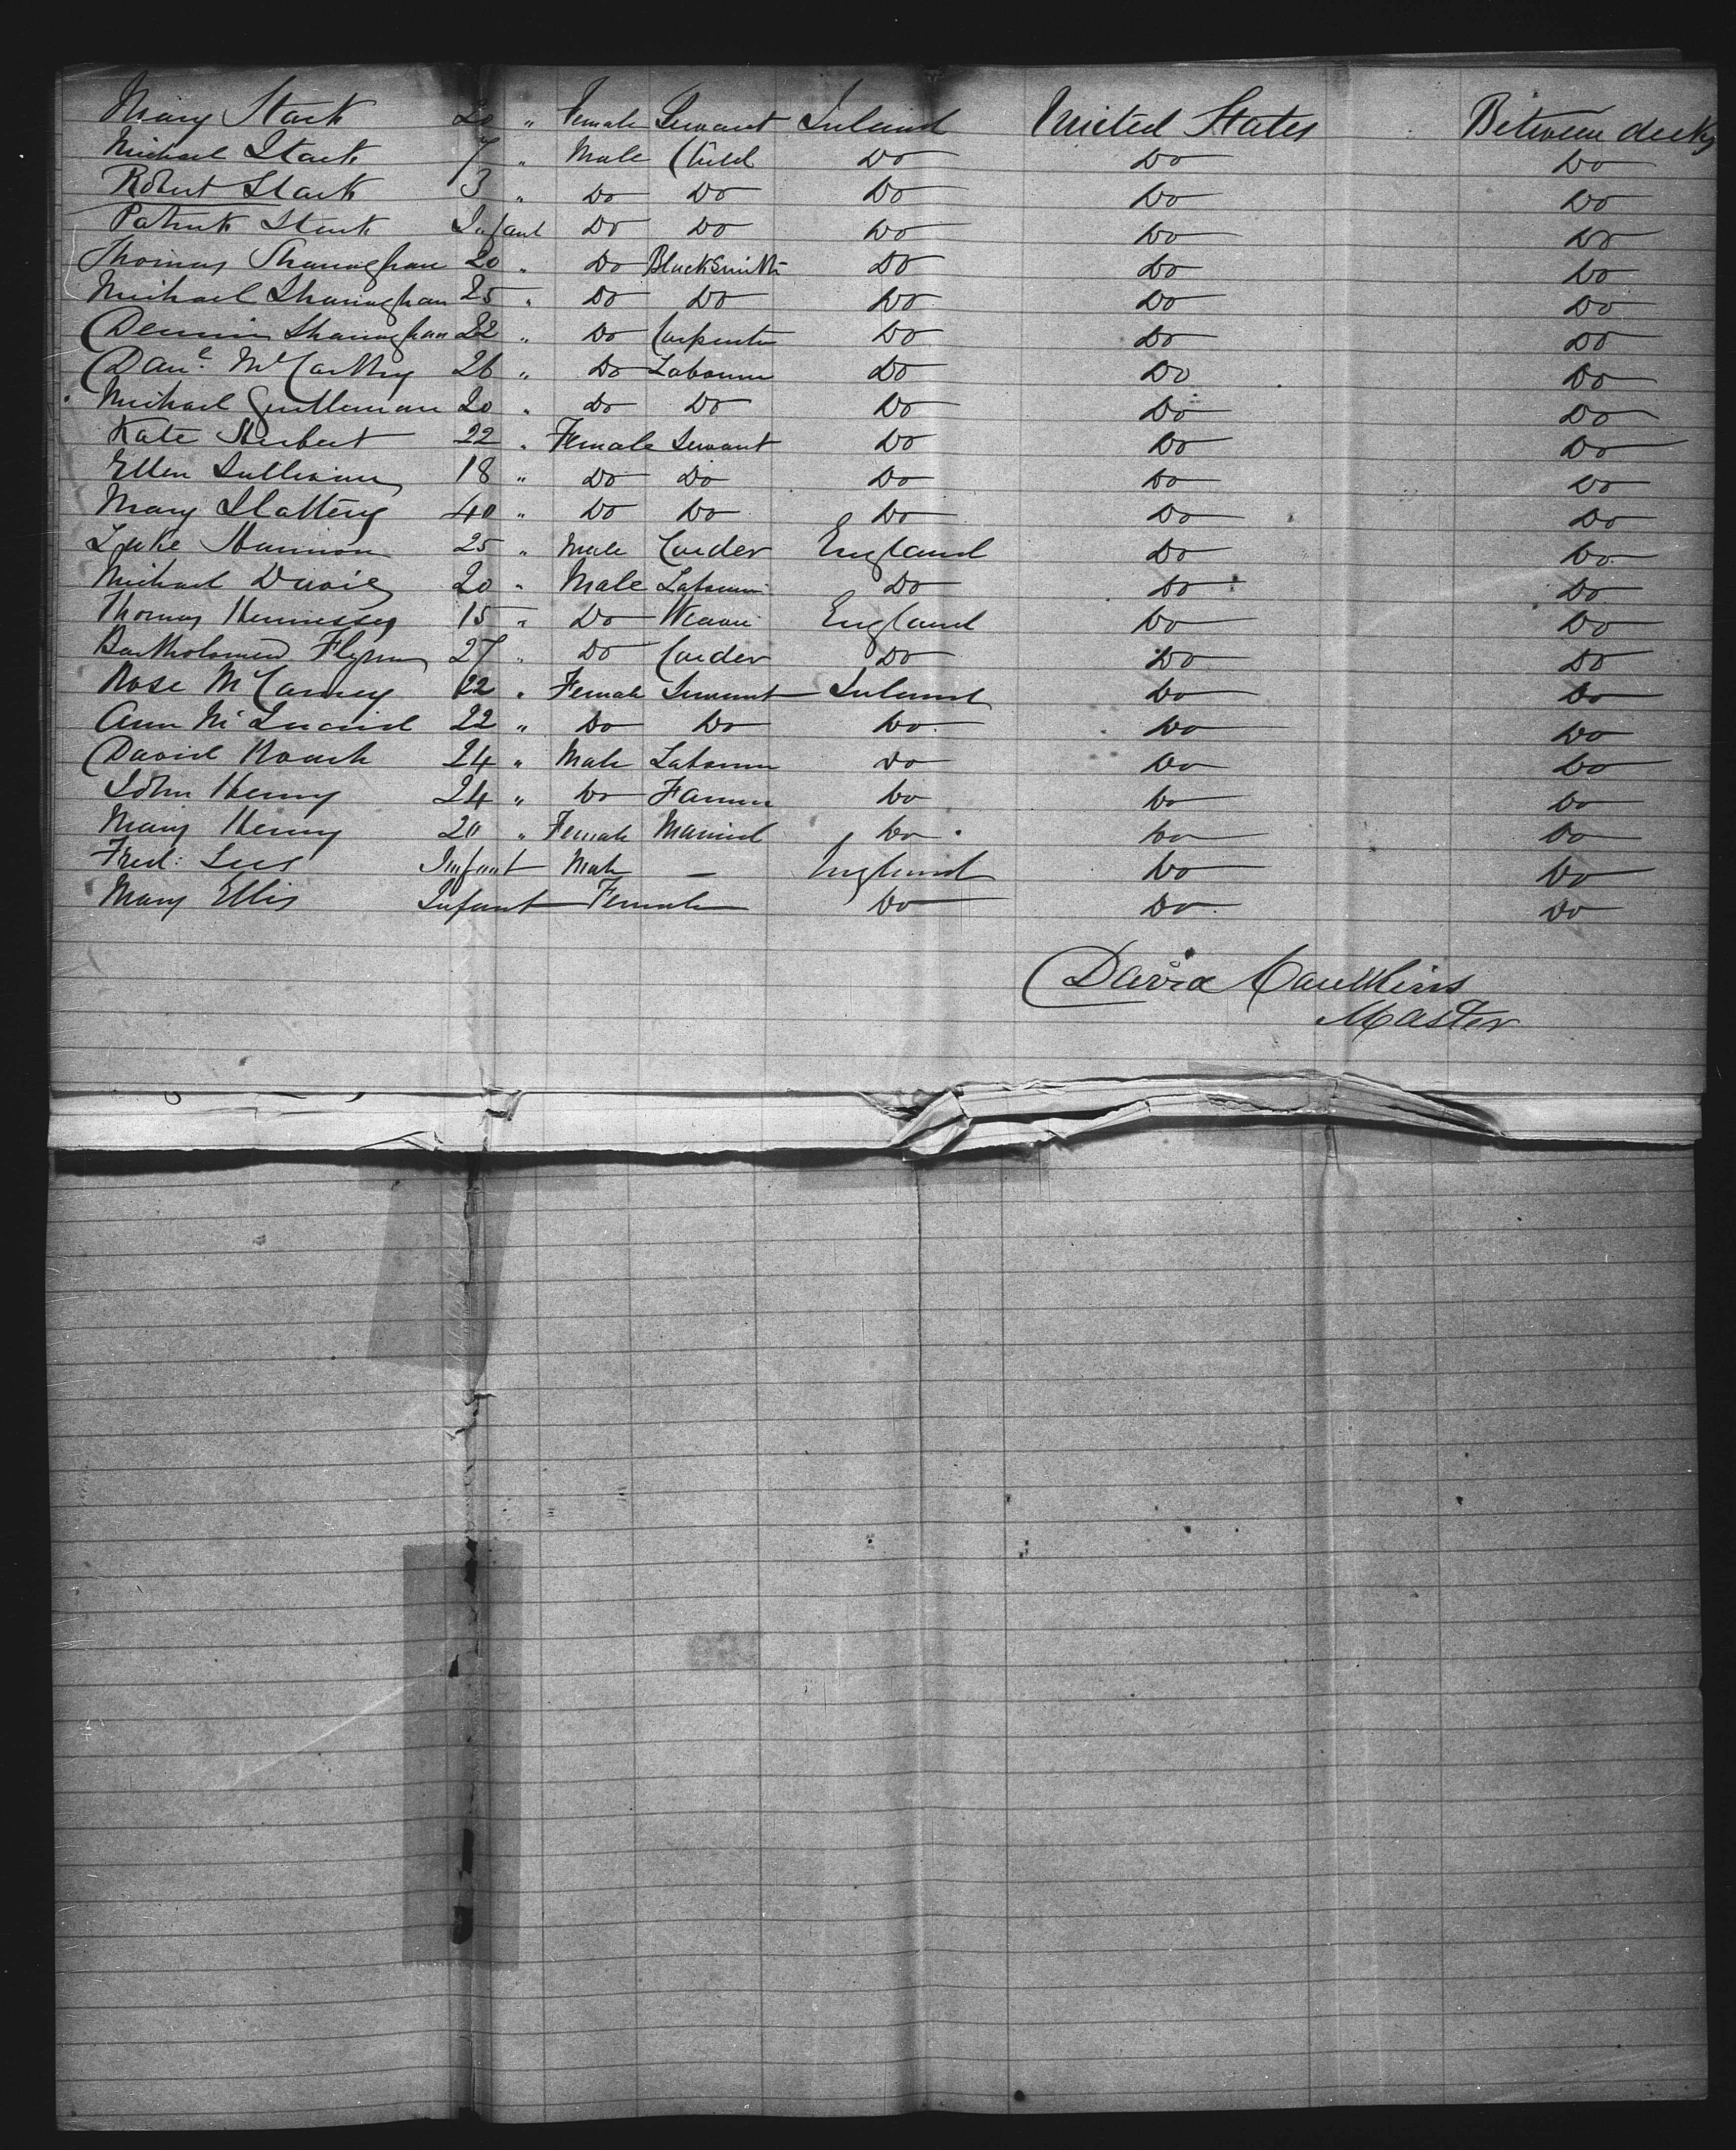 Mary Stack 20 " Female Servant Ireland United States Between decks
Michael Stack 7 " Male Child Do Do Do
Robert Stack 3 " Do Do Do Do Do
Patrick Stack Infant Do Do Do Do Do
Thomas Shanaghan 20 " Do Blacksmith Do Do Do
Michael Shanaghan 25 " Do Do Do Do Do
Dennis Shanaghan 22 " Do Carpenter Do Do Do
Danl McCarthy 26 " Do Labourer Do Do Do
Michael Gentleman 20 " Do Do Do Do Do
Kate Herbert 22 " Female Servant Do Do Do
Ellen Sullivan 18 " Do Do Do Do Do
Mary Slattery 40 " Do Do Do Do Do
Luke Hannon 25 " Male Carder England Do Do
Michael 20 " Male Labourer Do Do Do
Thomas Hennessey 15 " Do Weaver England Do Do
Bartholomew Flynn 27 " Do Carder Do Do Do
Rose 22 " Female Servant Ireland Do Do
Ann 22 " Do Do Do Do Do
David Roach 24 " Male Labourer Do Do Do
John Henry 24 " Do Farmer Do Do Do
Mary Henry 20 " Female Married Do Do Do
Fred: Lees Infant Male – England Do Do
Mary Ellis Infant Female Do Do Do
David Caulkins
Master